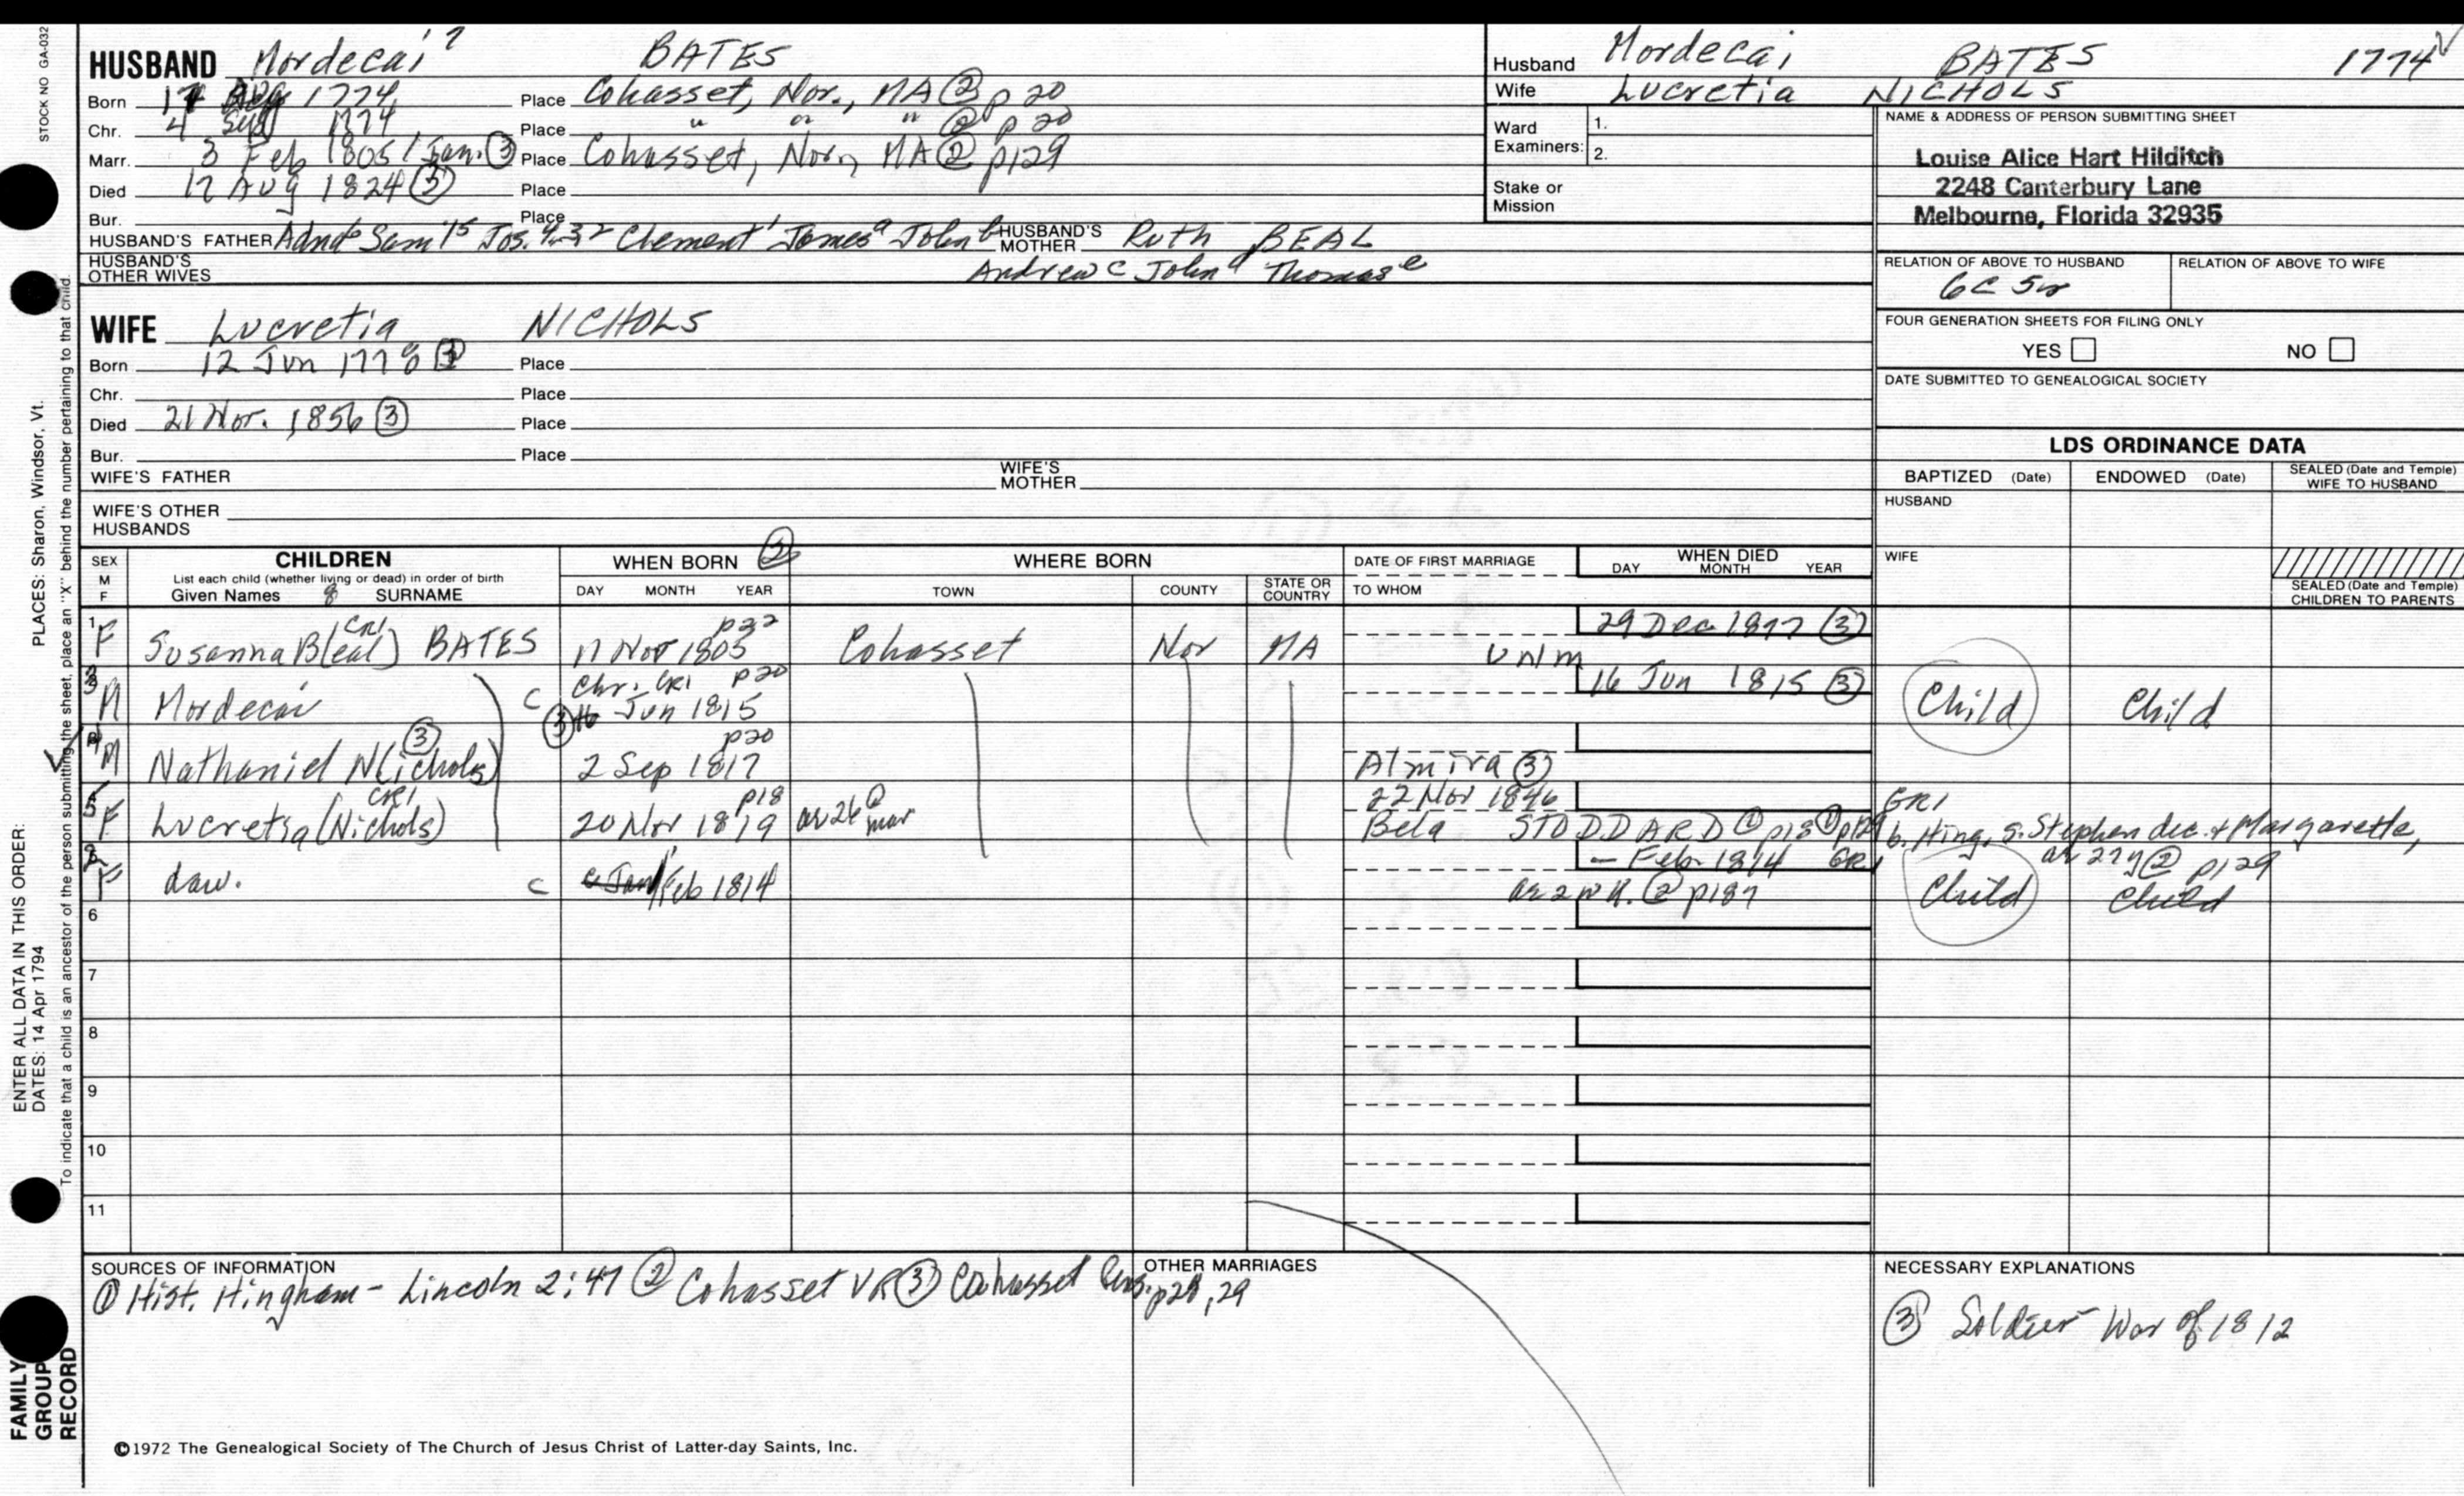 STOCK NO GA-032
HUSBAND Mordecai 7 BATES
Born 17 Aug 1774 Place Cohasset, Nor., MA ② p 20
Chr. 4 Sep 1774 Place " " " ② p 20
Marr. 3 Feb 1805 / Jan. ③ Place Cohasset, Nor, MA ② p129
Died 17 Aug 1824 ③ Place
Bur. Place
HUSBAND'S FATHER Clement James John HUSBAND'S MOTHER Ruth BEAL
HUSBAND'S OTHER WIVES Andrew c John d Thomas e
Husband Mordecai BATES 1774
Wife Lucretia NICHOLS
Ward Examiners: 1.
2.
Stake or Mission
NAME & ADDRESS OF PERSON SUBMITTING SHEET
Louise Alice Hart Hilditch
2248 Canterbury Lane
Melbourne, Florida 32935
RELATION OF ABOVE TO HUSBAND RELATION OF ABOVE TO WIFE
6C 5r
FOUR GENERATION SHEETS FOR FILING ONLY
YES NO
DATE SUBMITTED TO GENEALOGICAL SOCIETY
WIFE Lucretia NICHOLS
Born 12 Jun 1778 Place
Chr. Place
Died 21 Nov. 1856 ③ Place
Bur. Place
WIFE'S FATHER WIFE'S MOTHER
WIFE'S OTHER HUSBANDS
LDS ORDINANCE DATA
BAPTIZED (Date) ENDOWED (Date) SEALED (Date and Temple) WIFE TO HUSBAND
HUSBAND
WIFE
SEALED (Date and Temple) CHILDREN TO PARENTS
SEX M F CHILDREN WHEN BORN ③ WHERE BORN DATE OF FIRST MARRIAGE WHEN DIED
List each child (whether living or dead) in order of birth
Given Names 8 SURNAME DAY MONTH YEAR TOWN COUNTY STATE OR COUNTRY TO WHOM DAY MONTH YEAR
CR1 p22 29 Dec 1877 ③
1 F Susanna B(eal) BATES 17 Nov 1805 Cohasset Nor MA UNM
Chr. CR1 p20 16 Jun 1815 ③
3 M Mordecai C ③ Jun 1815 Child Child
③ p20
4 M Nathaniel N(ichols) 2 Sep 1817 Almira ③
CR1 p18 22 Nov 1846 GR1
5 F Lucretia (Nichols) 20 Nov 1819 ar 26 @ mar Bela STODDARD ① p18 b. Hing, s. Stephen dec. & Margarette,
- Feb. 1814 GR1 ar 27y ② p129
2 F daw. C Feb 1814 ae 2 wk. ② p187 Child Child
6
7
8
9
10
11
SOURCES OF INFORMATION
① Hist. Hingham - Lincoln 2:47 ② Cohasset VR ③ Cohasset Gens. p28, 29
OTHER MARRIAGES
NECESSARY EXPLANATIONS
③ Soldier War of 1812
©1972 The Genealogical Society of The Church of Jesus Christ of Latter-day Saints, Inc.
ENTER ALL DATA IN THIS ORDER:
DATES: 14 Apr 1794 PLACES: Sharon, Windsor, Vt.
To indicate that a child is an ancestor of the person submitting the sheet, place an "X" behind the number pertaining to that child.
FAMILY GROUP RECORD